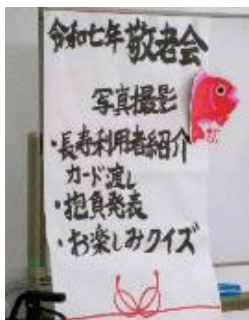 令和七年 敬老会
写真撮影
・長寿利用者紹介
カード渡し
・抱負発表
・お楽しみクイズ